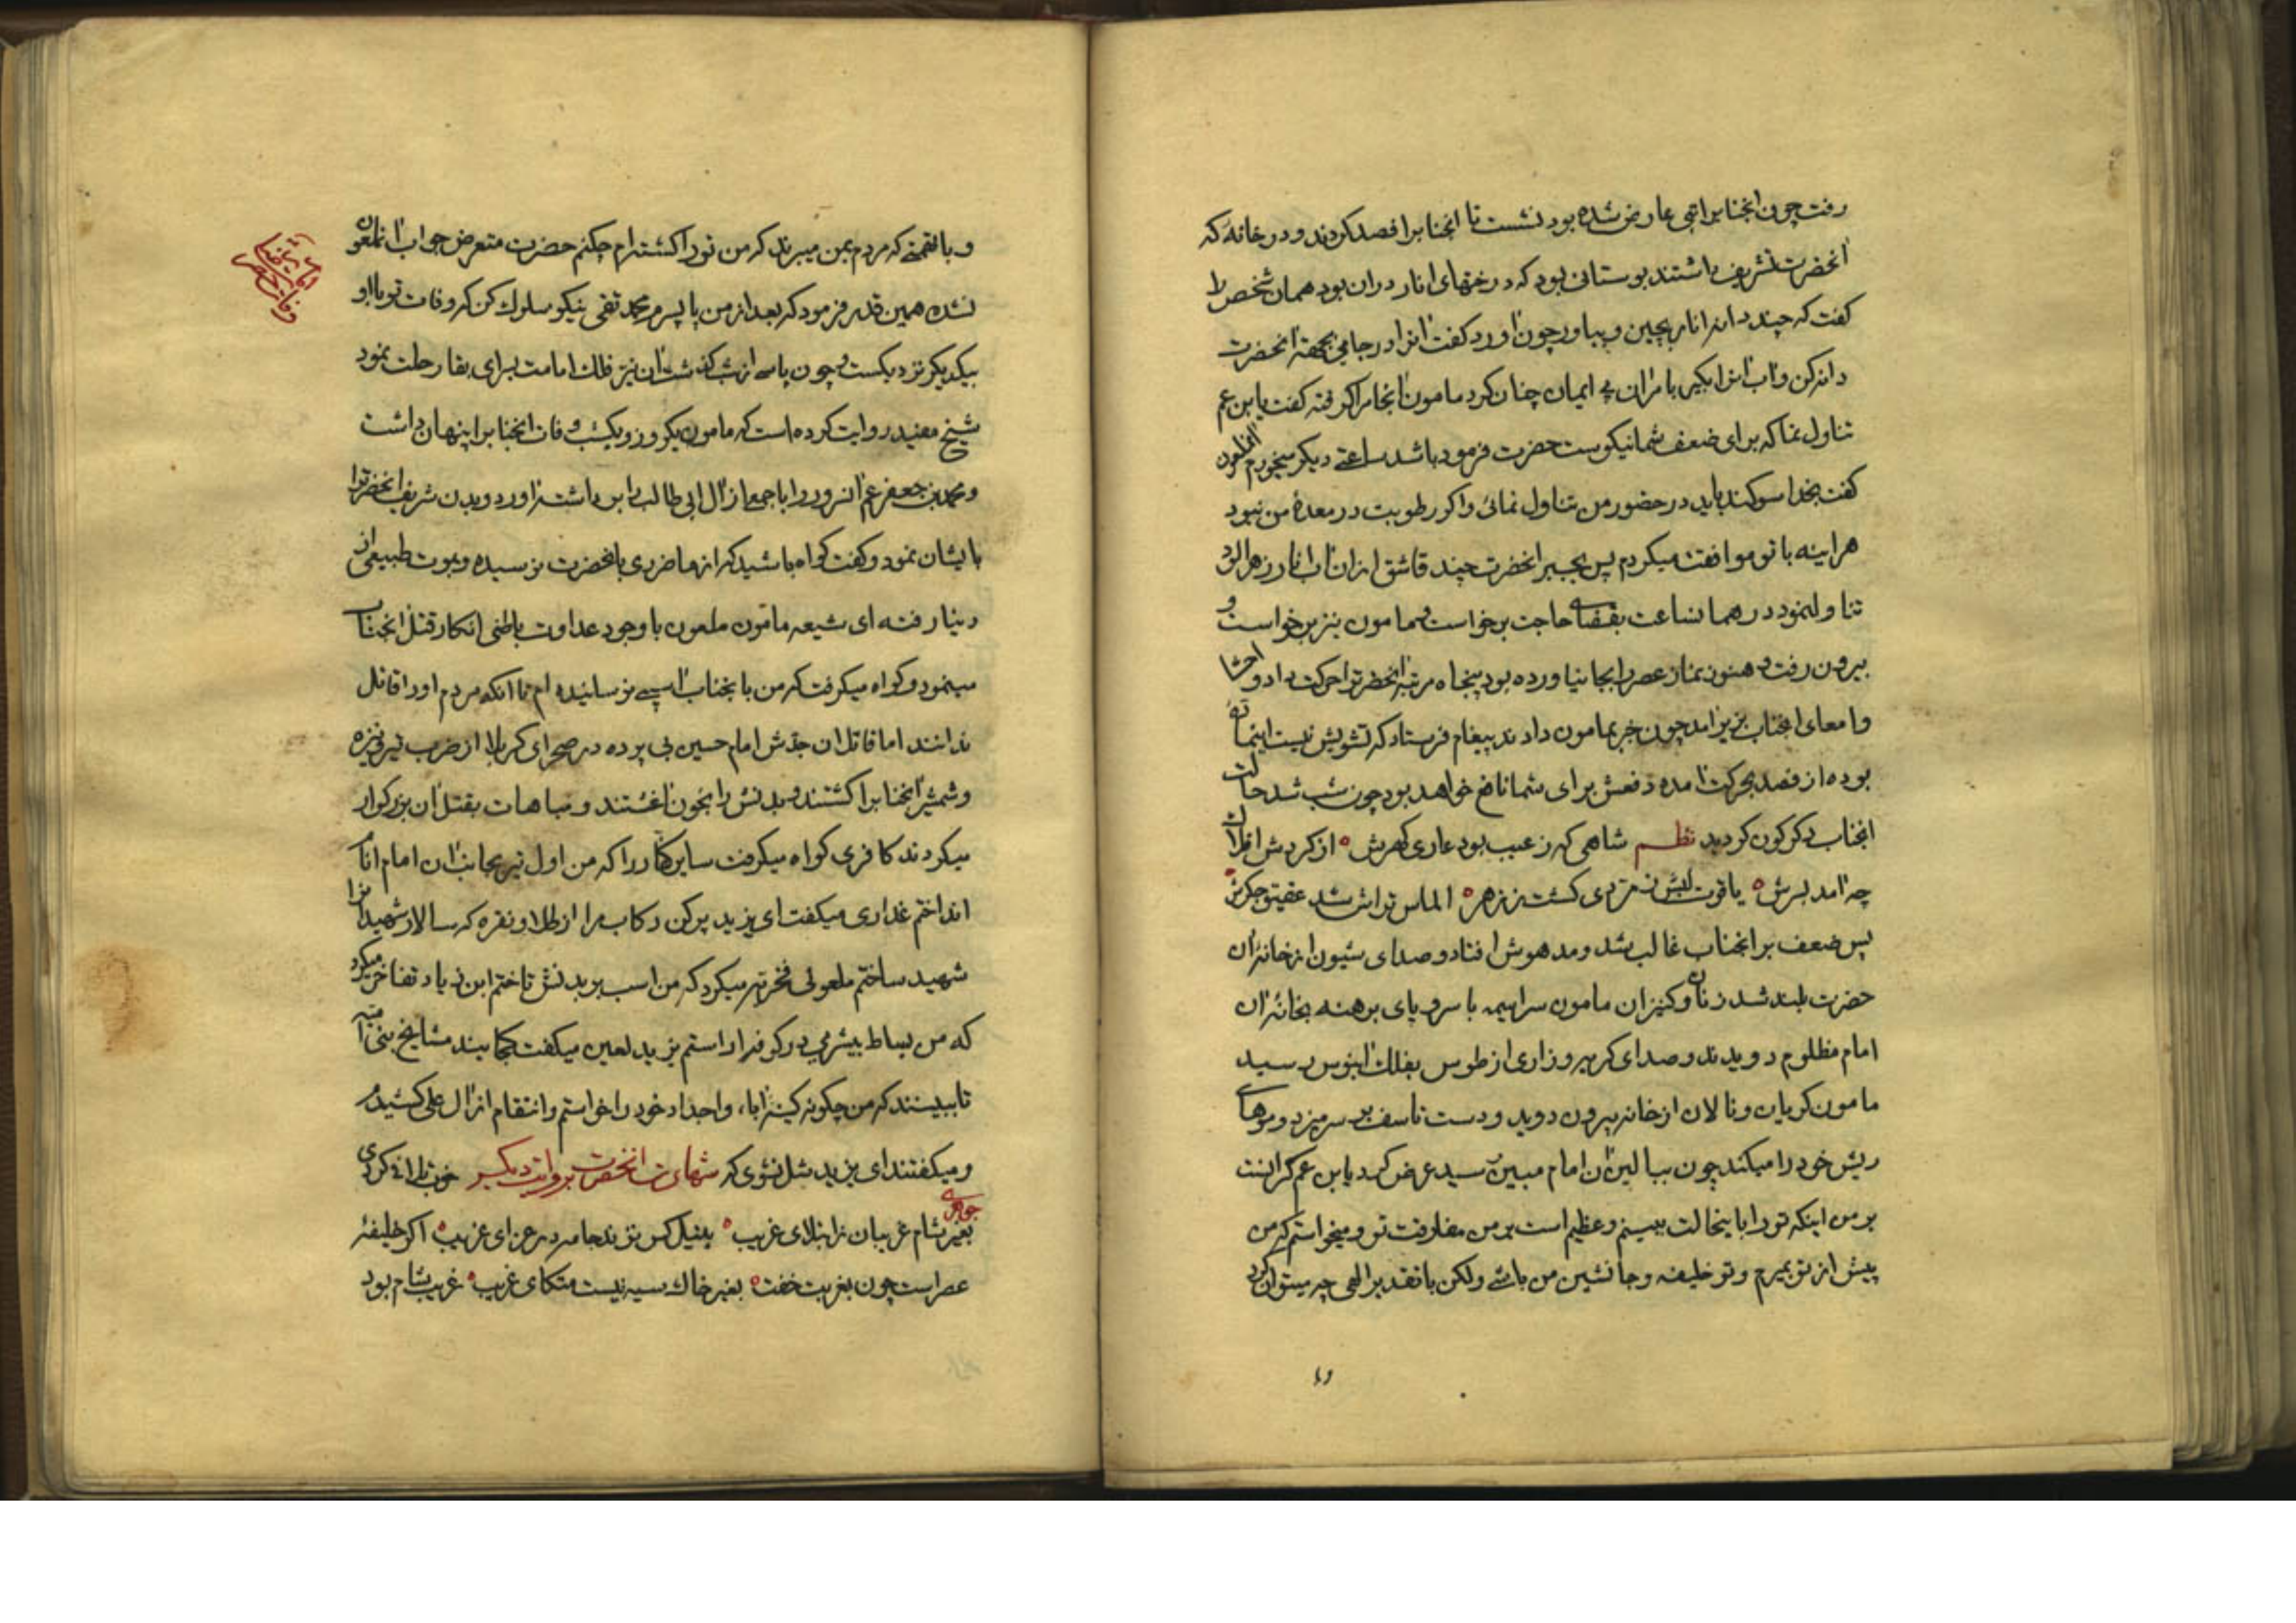 رفت چون انجناب را تبی عارض شده بود نشست تا انجناب را فصد کردند و در خانه که
انحضرت تشریف داشتند بوستانی بود که درختهای انار دران بود همان شخص را
کفت که چند دانه انار بچین و بیاور چون اورد کفت انرا در جامی بجهة انحضرت
دانه کن و اب انرا بکیر بامر ان بی ایمان چنان کرد مامون انجام را کرفته کفت یابن عم
تناول نما که برای ضعف شما نیکوست حضرت فرمود باشد ساعتی دیکر میخورم انملعون
کفت بخدا سوکند باید در حضور من تناول نمائی و اکر رطوبت در معدهٔ من نبود
هراینه با تو موافقت میکردم پس بجبر انحضرت چند قاشق ازان اب انار زهرالود
تناول نمود در همان ساعت بقضای حاجت برخواست و مامون نیز برخواست و
بیرون رفت و هنوز نماز عصر را بجا نیاورده بود پنجاه مرتبه انحضرترا حرکت داد و احشا
و امعای انجناب بزیر امد چون خبر بمامون دادند پیغام فرستاد که تشویش نیست اینماده
بوده از فصد بحرکت امده دفعش برای شما نافع خواهد بود چون شب شد حالت
انجناب دکرکون کردید نظم شاهی که ز عیب بود عاری کهرش ه از کردش افلاک
چه امد بسرش ه یاقوت لبش زمردی کشت ز زهر ه الماس تراش شد عقیق جکرش
پس ضعف بر انجناب غالب شد و مدهوش افتاد و صدای شیون از خانهٔ ان
حضرت بلند شد زنان و کنیزان مامون سراسیمه با سر و پای برهنه بخانهٔ ان
امام مظلوم دویدند و صدای کریه و زاری از طوس بفلک ابنوس رسید
مامون کریان و نالان از خانه بیرون دوید و دست تاسف بر سر میزد و موهای
ریش خود را میکند چون ببالین ان امام مبین رسید عرض کرد یابن عم کرانست
بر من اینکه تو را باینحالت ببینم و عظیم است بر من مفارقت تو و میخواستم که من
پیش از تو بمیرم و تو خلیفه و جانشین من باشی ولکن با تقدیر الهی چه میتوان کرد
وبا
و با تهمتی که مردم بمن میبرند که من تو را کشته ام چکنم حضرت متعرض جواب انملعون
نشده همین قدر فرمود که بعد از من با پسرم محمد تقی نیکو سلوک کن که وفات تو با او
بیکدیکر نزدیکست و چون پاسی از شب کذشت ان نیر فلک امامت بسرای بقا رحلت نمود
شیخ مفید روایت کرده است که مامون یکروز و یکشب وفات انجناب را پنهان داشت
و محمد بن جعفر عم انسرور را با جمعی از ال ابی طالب را بر داشته اورد و بدن شریف انحضرترا
بایشان نمود و کفت کواه باشید که از ما ضرری بانحضرت نرسیده و بموت طبیعی از
دنیا رفته ای شیعه مامون ملعون با وجود عداوت باطنی انکار قتل انجناب
مینمود و کواه میکرفت که من بانجناب اسیبی نرسانیده ام تا انکه مردم او را قاتل
ندانند اما قاتلان جدش امام حسین بی پرده در صحرای کربلا از ضرب تیر و نیزه
و شمشیر انجناب را کشتند و بدنش را بخون اغشتند و مباهات بقتل ان بزرکوار
میکردند کافری کواه میکرفت سایر کفار را که من اول تیر بجانب ان امام انام
انداختم غداری میکفت ای یزید پر کن رکاب مرا از طلا و نقره که سالار شهیدانرا
شهید ساختم ملعونی فخریه میکرد که من اسب بر بدنش تاختم ابن زیاد تفاخر میکرد
که من بساط بیشرمی در کوفه اراستم یزید لعین میکفت کجایند مشایخ بنی امیه
تا ببینند که من چکونه کینهٔ ابا، و اجداد خود را خواستم و انتقام از ال علی کشیدم
و میکفتند ای یزید شل نشوی که شهادت انحضرت بروایت دیکر خوب تلافی کردی
بغیر شام غریبان ز ابتلای غریب ه بنیل کس نزند جامه در عزای غریب ه اکر خلیفهٔ
عصر است چون بغربت خفت ه بغیر خاک سیه نیست متکای غریب ه غریب شام بود